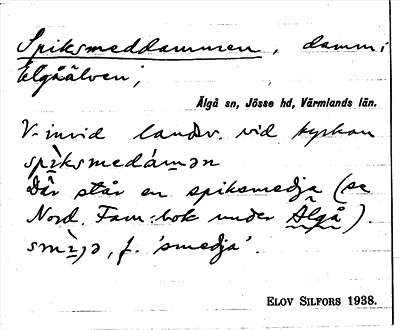 Spiksmeddammen, damm i
Elgåälven;
Älgå sn, Jösse hd, Värmlands län.
V. invid landsv. vid kyrkan
spìksmedám̲ən
Där står en spiksmedja (se
Nord. Fam:bok under Älgå).
smìjə, f. 'smedja'.
ELOV SILFORS 1938.